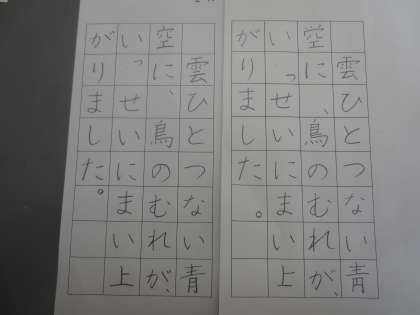 雲ひとつない青
空に、鳥のむれが、
いっせいにまい上
がりました。
雲ひとつない青
空に、鳥のむれが、
いっせいにまい上
がりました。